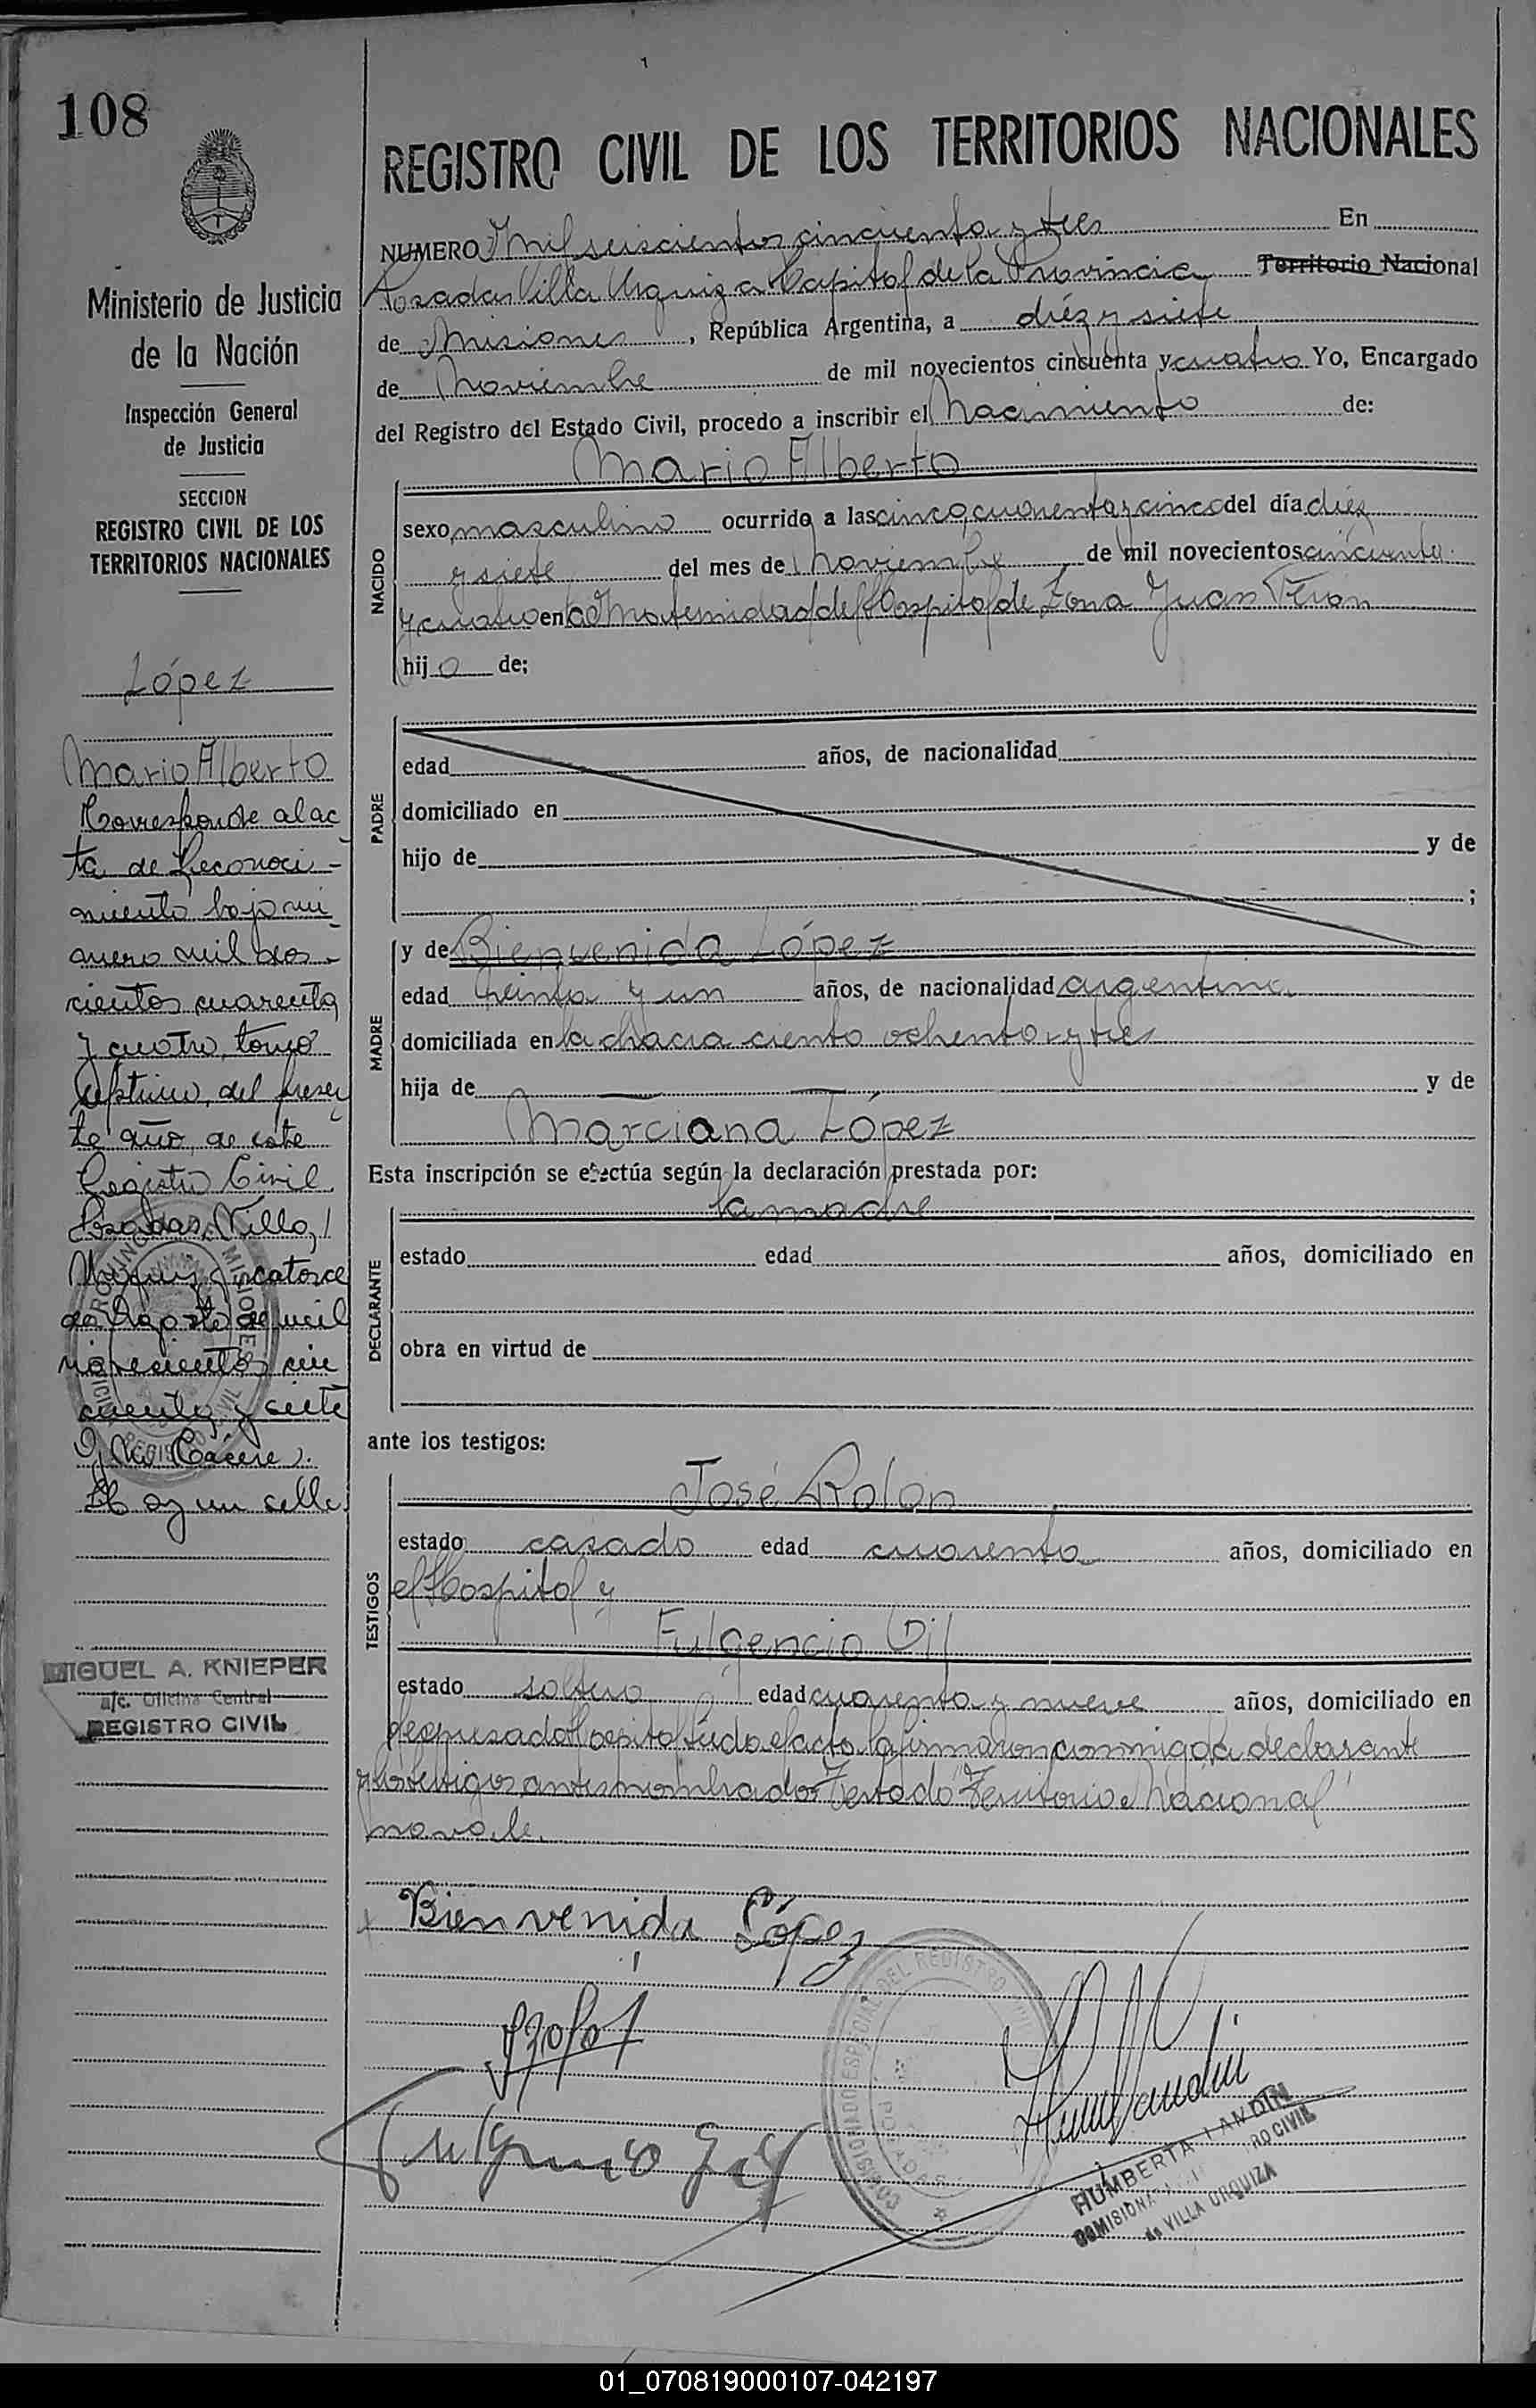 108
Ministerio de Justicia
de la Nación
Inspección General
de Justicia
SECCION
REGISTRO CIVIL DE LOS
TERRITORIOS NACIONALES
López
Mario Alberto
Corresponde al ac
ta de Reconoci-
miento bajo nú
mero mil dos-
cientos cuarenta
y cuatro, tomo
séptimo, del presen
te año, de este
Registro Civil
Posadas, Villa
Urquiza, catorce
de Agosto de mil
novecientos cin
cuenta y siete
Cácere
Hay un sello.
MIGUEL A. KNIEPER
a/c. Oficina Central
REGISTRO CIVIL
REGISTRO CIVIL DE LOS TERRITORIOS NACIONALES
NUMERO Mil seiscientos cincuenta y tres En
Posadas Villa Urquiza Capital de la Provincia Territorio Nacional
de Misiones, República Argentina, a diéz y siete
de Noviembre de mil novecientos cincuenta y cuatro Yo, Encargado
del Registro del Estado Civil, procedo a inscribir el Nacimiento de:
Mario Alberto
NACIDO
sexo masculino ocurrido a las cinco, cuarenta y cinco del día diéz
y siete del mes de Noviembre de mil novecientos cincuenta
y cuatro en la Maternidad del Hospital de Zona Juan Perón
hijo de;
PADRE
edad años, de nacionalidad
domiciliado en
hijo de y de
;
MADRE
y de Bienvenida López
edad treinta y un años, de nacionalidad argentina
domiciliada en la chacra ciento ochenta y tres
hija de y de
Marciana López
Esta inscripción se efectúa según la declaración prestada por:
la madre
DECLARANTE
estado edad años, domiciliado en
obra en virtud de
ante los testigos:
TESTIGOS
José Rolon
estado casado edad cuarenta años, domiciliado en
el Hospital y
Fulgencio Gil
estado soltero edad cuarenta y nueve años, domiciliado en
el expresado Hospital. Leída el acta la firmaron conmigo la declarante
y los testigos antes nombrados. Testado "Territorio Nacional"
no vale.
Bienvenida López
Fulgencio Gil
COMISIONADO ESPECIAL DEL REGISTRO CIVIL
POSADAS
HUMBERTA LANDIN
COMISIONA
RO CIVIL
de VILLA URQUIZA
01_070819000107-042197